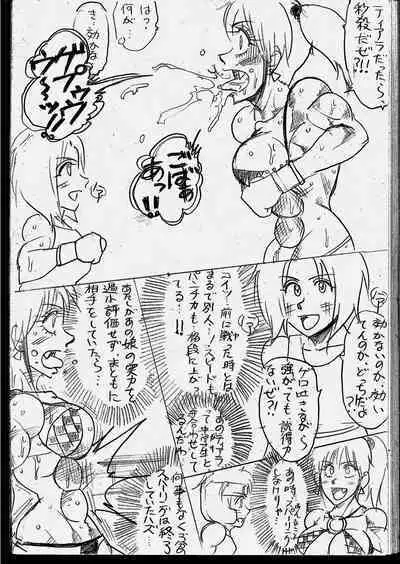 ティアラだったら、
秒殺だぜ?!!
はっ?
何が…
き…効かな
ウゲプゥウ
ウ～ッ!!
ごばぁ
あっ!!
効かないのか、効い
てんのか、どっちだよ
ゲロ吐きながら
強がっても、説得力
ないぜ?!
コイツ…前に戦った時とは
まるで別人!!スピードも
パンチ力も格段に上が
ってる…!!
あたしがあの娘の実力を
過小評価せず、まともに
相手をしていたら…
あのティアラ
って中学生と
手合わせして
るんだわ
あの時、スパーリング
しなければ…
何事もなく
スパーリングは終了
していたハズ…